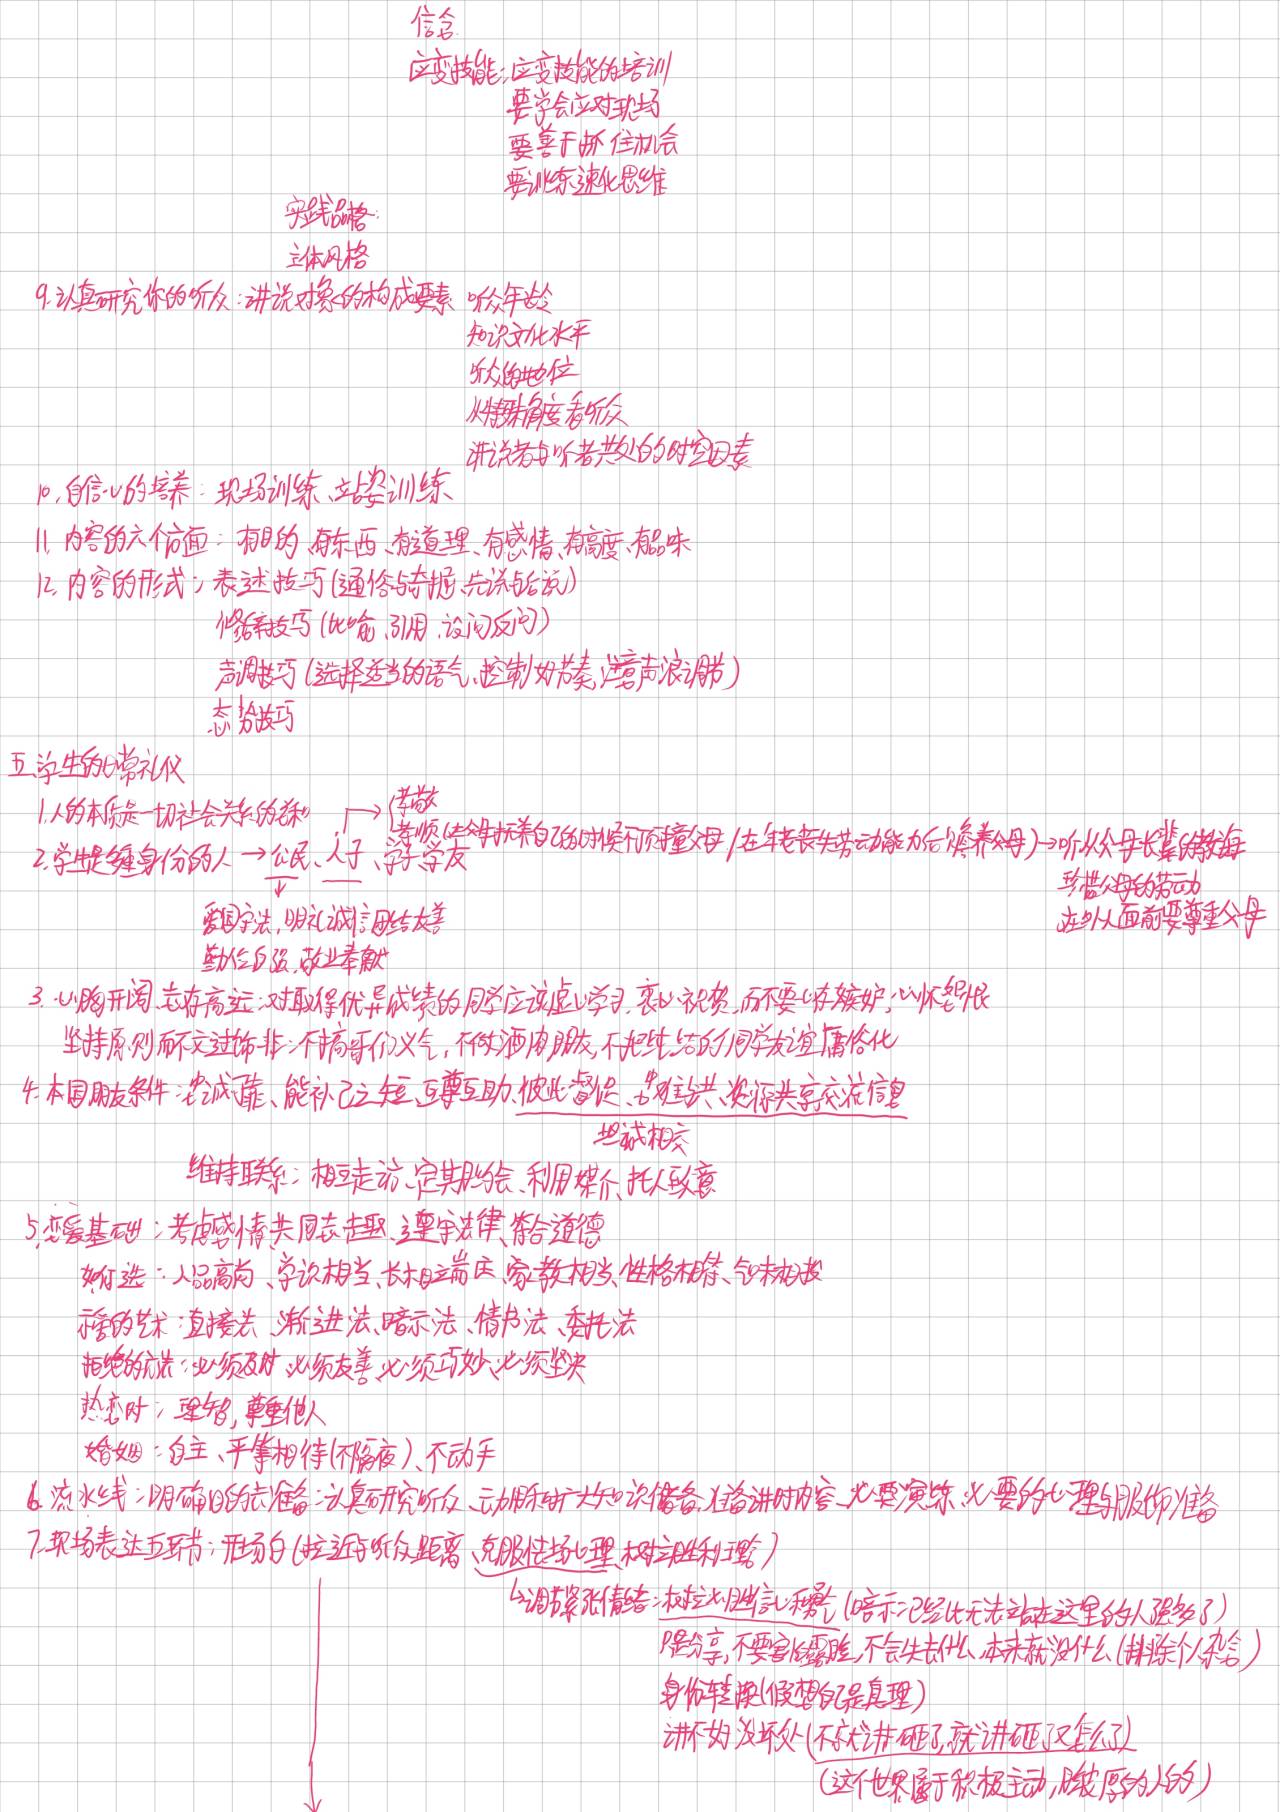 信念
应变技能:应变技能的培训
要学会应对现场
要善于抓住机会
要训练速化思维
实践品格:
立体风格
9.认真研究你的听众:讲说对象的构成要素 听众年龄
知识文化水平
听众的地位
从特殊角度看听众
讲说者与听者共处的时空因素
10.自信心的培养:现场训练、站姿训练
11.内容的六个方面:有目的、有东西、有道理、有感情、有高度、有品味
12.内容的形式:表述技巧(通俗与奇掘、先说与后说)
修辞技巧(比喻、引用、设问反问)
声调技巧(选择适当的语气、控制好节奏、注意声浪调节)
态势技巧
五.学生的日常礼仪
1.人的本质是一切社会关系的总和
孝敬
孝顺(在父母抚养自己的时候不顶撞父母/在年老丧失劳动能力后赡养父母)→听从父母长辈的教诲
2.学生是多重身份的人→公民、人子、学子、学友
珍惜父母的劳动
在外人面前要尊重父母
爱国守法,明礼诚信,团结友善
勤俭自强,敬业奉献
3.心胸开阔、志存高远:对取得优异成绩的同学应该虚心学习,衷心祝贺,而不要心存嫉妒,心怀怨恨
坚持原则而不文过饰非:不搞哥们义气,不做酒肉朋友,不把纯洁的同学友谊庸俗化
4.本国朋友条件:忠诚可靠、能补己之短、互尊互助、彼此督促、患难与共、及时共享交流信息
坦诚相交
维持联系:相互走访、定期约会、利用媒介、托人致意
5.恋爱基础:考虑感情共同志趣、遵守法律、符合道德
如何选:人品高尚、学识相当、长相端庄、家教相当、性格相符、气味相投
示爱的艺术:直接法、渐进法、暗示法、情书法、委托法
拒绝的方法:必须及时、必须友善、必须巧妙、必须坚决
热恋时:理智,尊重他人
婚姻:自主、平等相待(不隔夜)、不动手
6.流水线:明确目的去准备:认真研究听众、动脑和扩大知识储备、准备讲时内容、必要演练、必要的心理与服饰准备
7.现场表达五环节:开场白(拉近与听众距离、克服怯场心理、树立胜利理念)
↳调节紧张情绪:树立必胜信心和勇气(暗示已经比无法站在这里的人强多了)
只是分享,不要害怕露脸,不会失去什么,本来就没什么(排除个人杂念)
身份转换(假想自己是真理)
讲不好没坏处(不就讲砸了,就讲砸了又怎么了)
(这个世界属于积极主动,脸皮厚的人的)